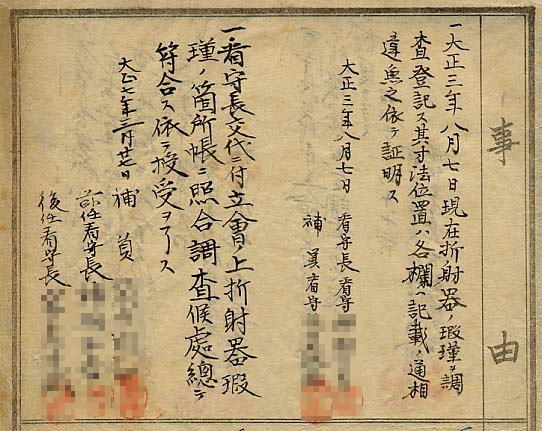 事由
一大正三年八月七日現在折射器ノ瑕瑾ヲ調
査登記ス其寸法位置ハ各欄ヘ記載ノ通相
違無之依テ証明ス
大正三年八月七日 看守長看守
補員看守
一看守長交代ニ付立會上折射器瑕
瑾ノ箇所帳ニ照合調査候處總テ
符合ス依テ授受ヲ了ス
大正七年三月廿七日 補員
前任看守長
後任看守長